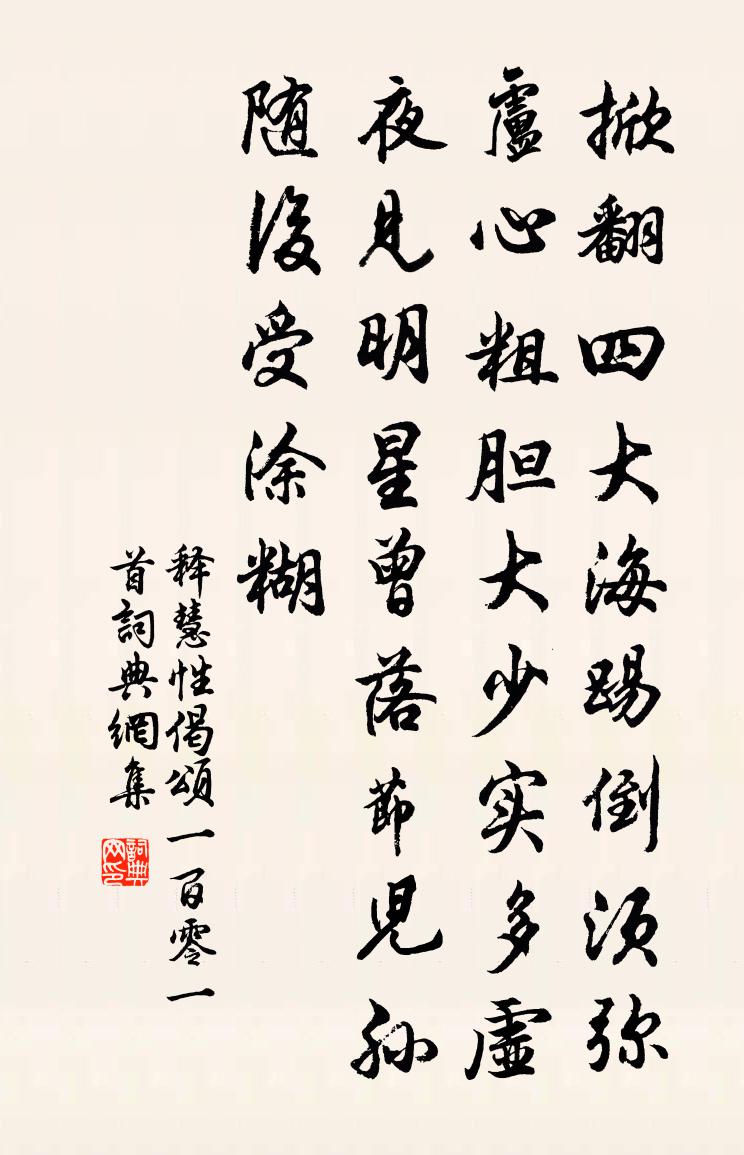 掀翻四大海踢倒须弥
盧心粗胆大少实多虚
夜見明星曾落莭児孙
随後受涂糊
释慧性偈頌一百零一
首詞典網集
詞典网印